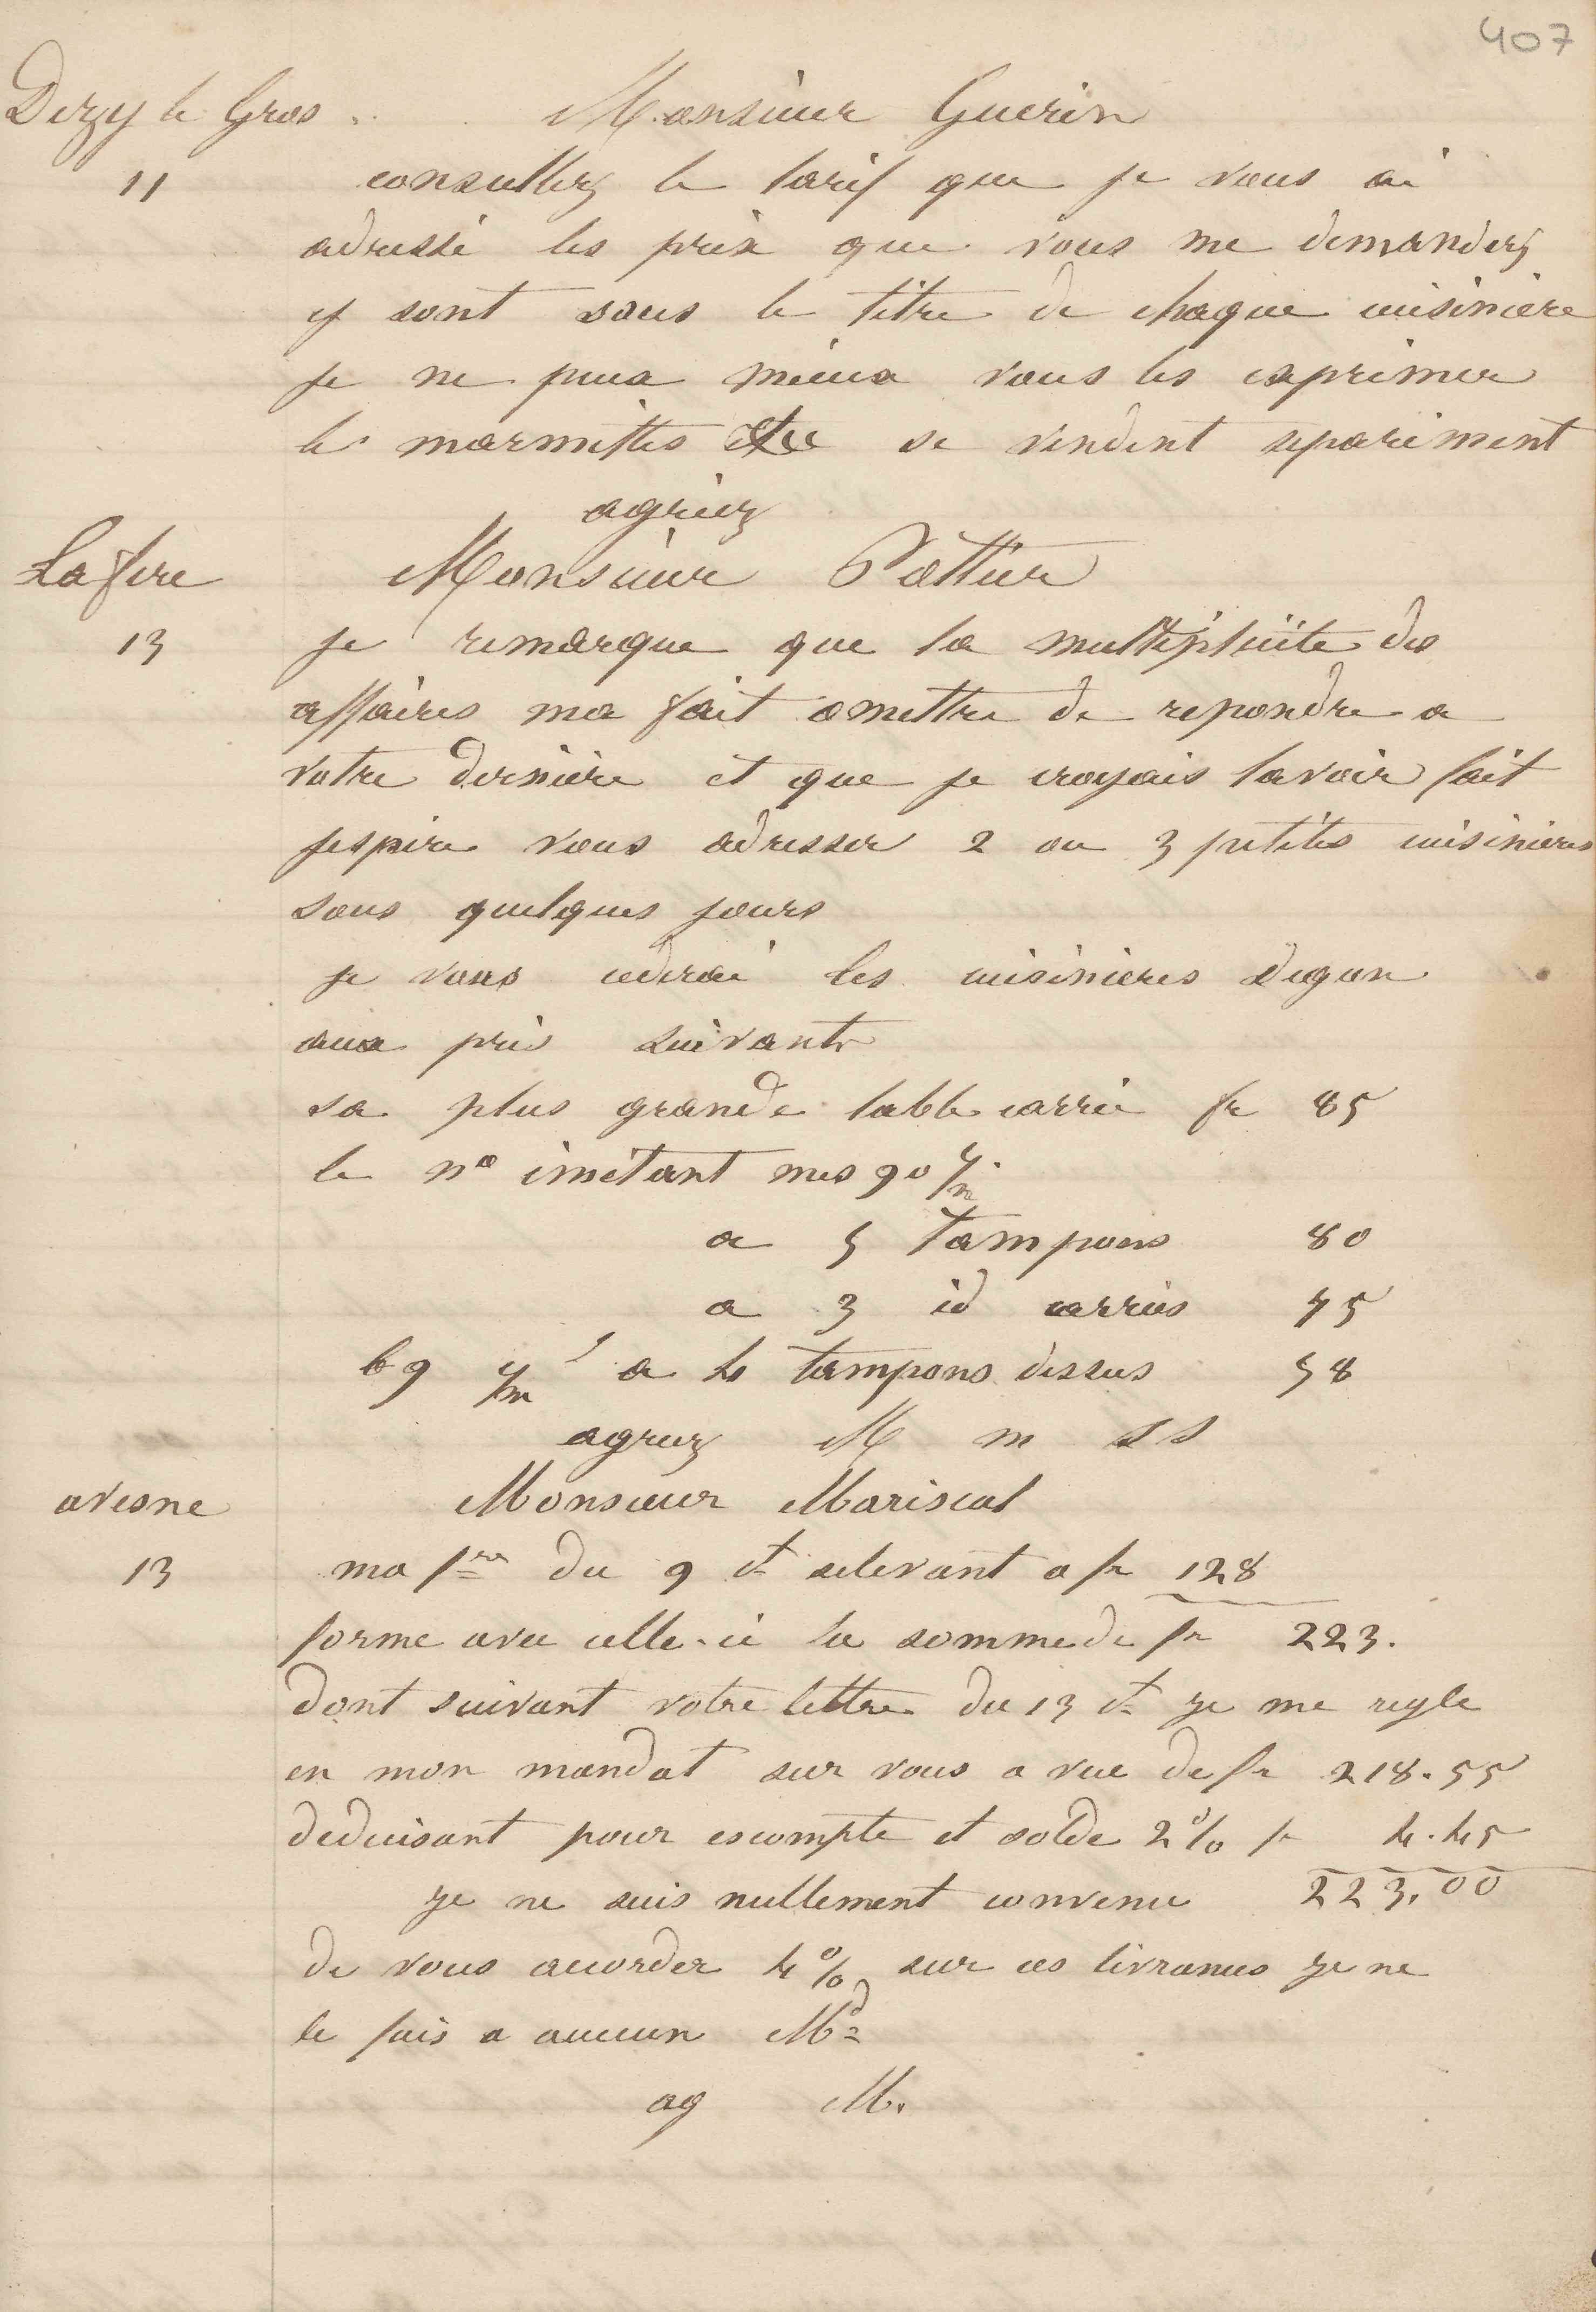 407
Dizy le Gros Monsieur Guerin
11 consultez le tarif que je vous ai
adressé les prix que vous me demandez
y sont sous le titre de chaque cuisiniere
je ne peux mieux vous les exprimer
les marmittes se vendent separément
agréez
Lafere Monsieur Pottier
13 je remarque que la multiplicite des
affaires ma fait omettre de repondre a
votre derniere et que je croyais lavoir fait
jespere vous adresser 2 ou 3 petites cuisinieres
sous quelques jours
je vous cederai les cuisinieres Degon
aux prix suivants
sa plus grande table carrée fr 85
le no imitant mes 90 c/m
a 5 tampons 80
a 3 id carrées 75
69 c/m a 4 tampons dessus 58
agreez M m s s
avesne Monsieur Mariscal
13 ma fre du 9 ct selevant a fr 128
forme avec celle-ci la somme de fr 223.
dont suivant votre lettre du 13 ct je me regle
en mon mandat sur vous a vue de fr 218.55
deduisant pour escompte et solde 2% fr 4.45
je ne suis nullement convenu 223.00
de vous accorder 4% sur ces livrances je ne
le fais a aucun Md
ag M.